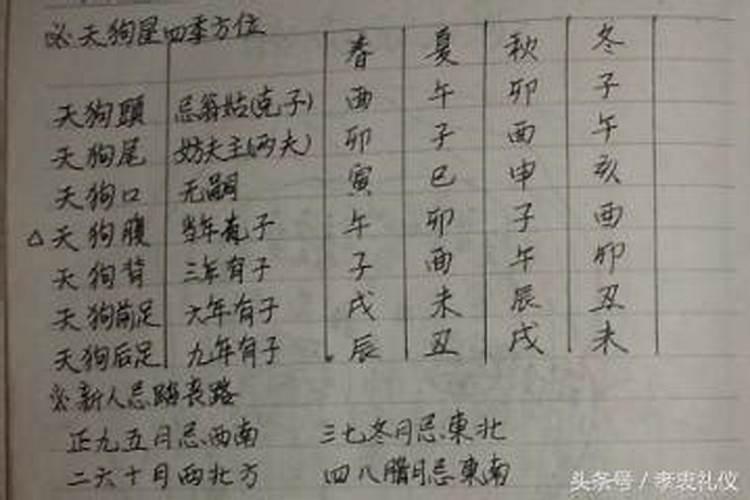 天狗星四季方位
春 夏 秋 冬
天狗頭 忌翁姑(克子) 酉 午 卯 子
天狗尾 妨夫主(两夫) 卯 子 酉 午
天狗口 无嗣 寅 巳 申 亥
△天狗腹 当年有子 午 卯 子 酉
天狗背 三年有子 子 酉 午 卯
天狗前足 六年有子 戌 未 辰 丑
天狗后足 九年有子 辰 丑 戌 未
新人忌踏丧路
正九五月忌西南 三七冬月忌東北
二六十月西北方 四八腊月忌東南
头条号/李衷礼仪